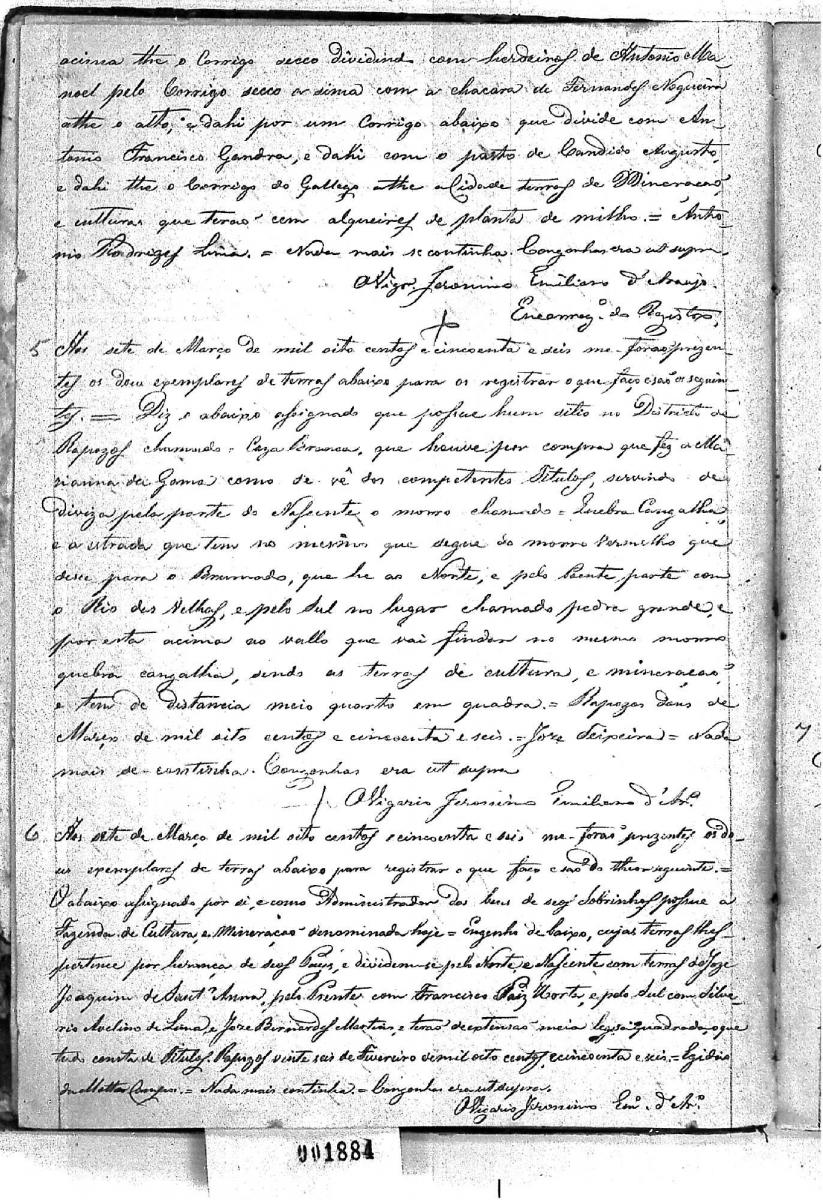 acima the o Corrigo secco dividind com herdeiros de Antonio Ma-
noel pelo Corrigo secco a sima com a chacara de Fernandes Nogueira
athe o alto, e dahi por um Corrigo abaixo que divide com An-
tonio Francisco Gandra, e dahi com o pasto de Candido Augusto,
e dahi the o Corrigo do Gallego athe a Cidade terras de Mineração,
e culturas que terao cem alqueires de planta de milho. = Anto-
nio Rodrizes Lima. = Nada mais se continha. Congonhas era ut supra.
O Vigr. Jeronimo Emiliano d'Araujo.
Encarreg.º do Registro,
5 Aos sete de Março de mil oito centos e cincoenta e seis me forao prezen-
tes os dous exemplares de terras abaixo para os registrar o que faço e são os seguin-
tes. = Diz o abaixo assignado que possue hum sitio no Districto de
Rapozos chamado = Caza Branca, que houve por compra que fez a Ma-
rianna da Gama como se vê dos competentes Titulos, servindo de
diviza pela parte do Nascente o morro chamado = Quebra Cangalha,
e a estrada que tem no mesmo que segue do morro Vermelho que
desce para o Brumado, que he ao Norte, e pelo Poente parte com
o Rio das Velhas, e pelo Sul no lugar chamado pedra grande, e
por esta acima ao vallo que vai findar no mesmo morro
quebra cangalha, sendo as terras de cultura, e mineracao,
e tem de distancia meio quarto em quadra. = Rapozos dous de
Março de mil oito centos e cincoenta e seis. = Joze Teixeira = Nada
mais se continha. Congonhas era ut supra
O Vigario Jeronimo Emiliano d'Ar.º
6 Aos sete de Março de mil oito centos e cincoenta e seis me forao prezentes os do-
us exemplares de terras abaixo para registrar o que faço e sao do theor seguinte. =
O abaixo assignado por si, e como Administrador dos bens de seos Sobrinhos possue a
Fazenda de Cultura, e Mineração denominada hoje = Engenho de baixo, cujas terras lhes
pertence por herança de seos Pays, e dividem-se pelo Norte e Nascente com terras de Joze
Joaquim de Sant'Anna, pelo Poente com Francisco Paiz Horta, e pelo Sul com Silve-
rio Avelino de Lima, e Joze Bernardes Martins, e terao de extensao meia legoa quadrada, o que
tudo consta de Titulos. Rapozos vinte seis de Fevereiro de mil oito centos, e cincoenta e seis. = Egidio
da Motta = Nada mais continha = Congonhas era ut supra.
O Vigario Jeronimo Em.º d'Ar.º
001884
7